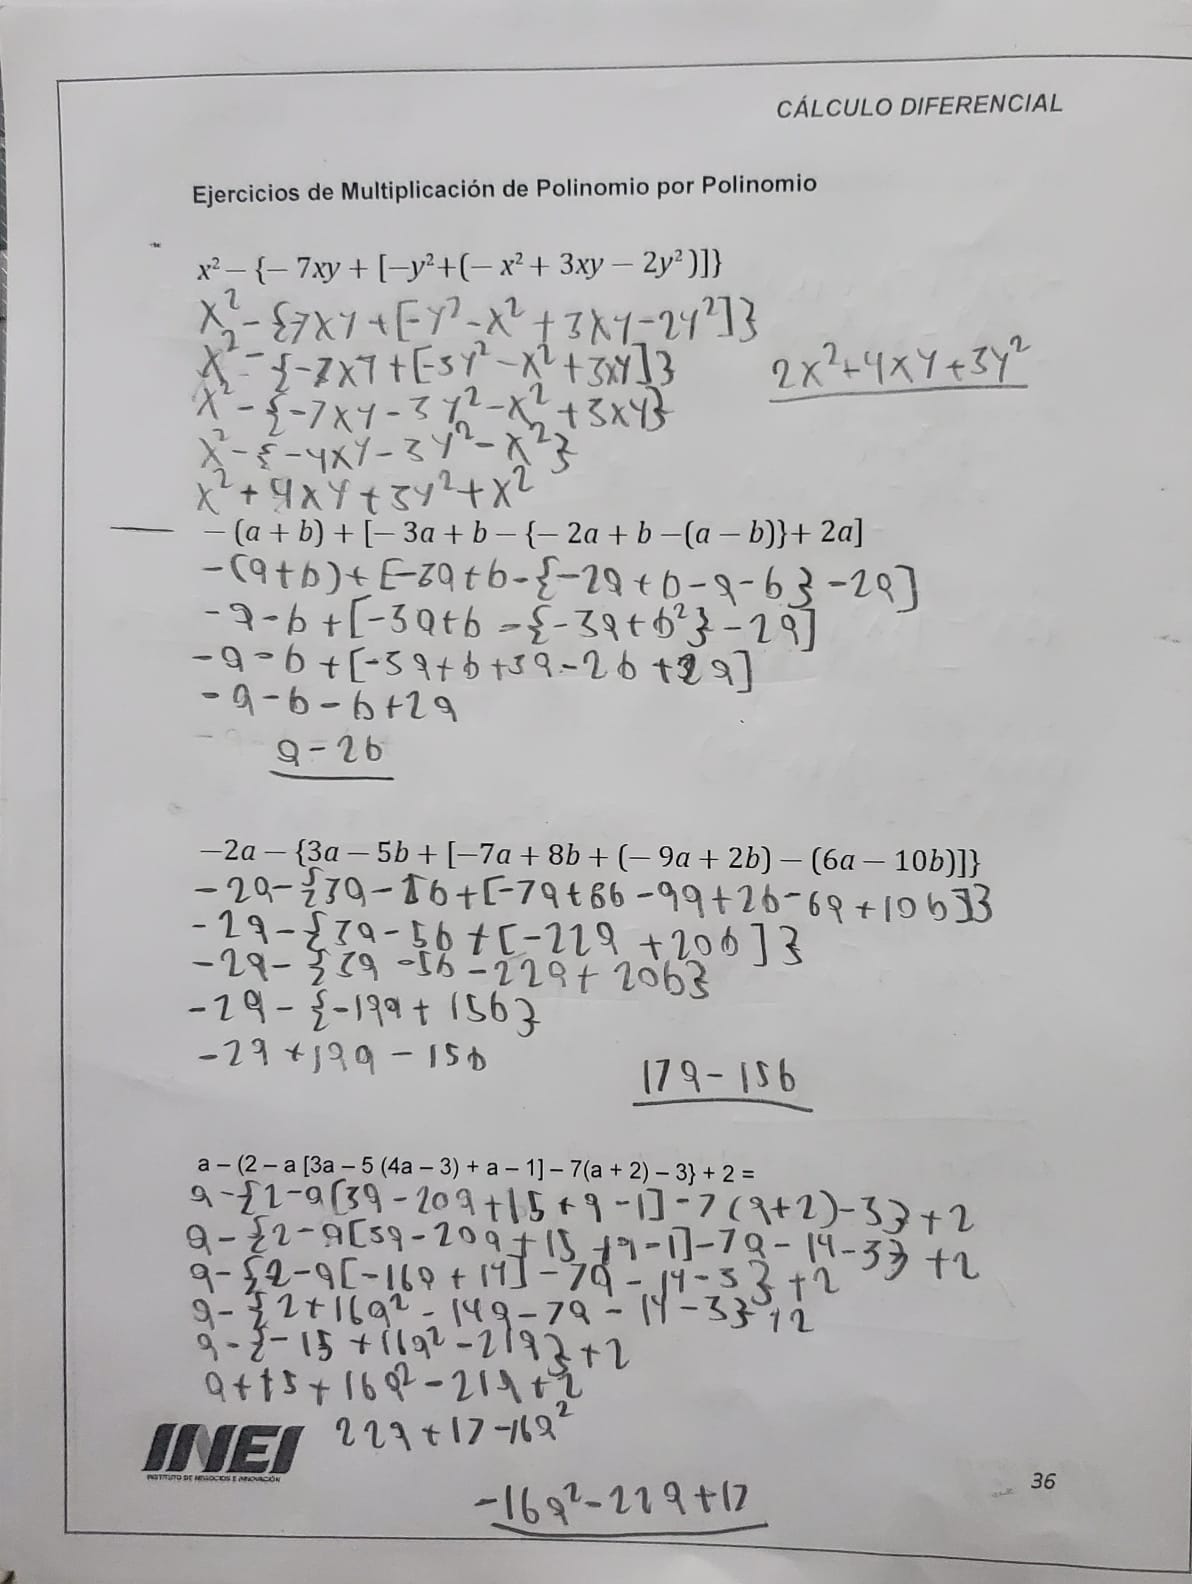 CÁLCULO DIFERENCIAL
Ejercicios de Multiplicación de Polinomio por Polinomio
x² – {– 7xy + [–y²+(– x² + 3xy – 2y²)]}
x² - {7xy + [-y² - x² + 3xy - 2y²]}
x² - {-7xy + [-3y² - x² + 3xy]}
2x² + 4xy + 3y²
x² - {-7xy - 3y² - x² + 3xy}
x² - {-4xy - 3y² - x²}
x² + 4xy + 3y² + x²
– (a + b) + [– 3a + b – {– 2a + b –(a – b)}+ 2a]
-(a+b)+[-3a+b-{-2a+b-a-b}-2a]
-a-b+[-3a+b-{-3a+b²}-2a]
-a-b+[-3a+b+3a-2b+2a]
-a-b-b+2a
a-2b
–2a – {3a – 5b + [–7a + 8b + (– 9a + 2b) – (6a – 10b)]}
-2a-{3a-5b+[-7a+8b-9a+2b-6a+10b]}
-2a-{3a-5b+[-22a+20b]}
-2a-{3a-5b-22a+20b}
-2a-{-19a+15b}
-2a+19a-15b
17a-15b
a – (2 – a [3a – 5 (4a – 3) + a – 1] – 7(a + 2) – 3} + 2 =
a-{2-a[3a-20a+15+a-1]-7(a+2)-3}+2
a-{2-a[3a-20a+15+a-1]-7a-14-3}+2
a-{2-a[-16a+14]-7a-14-3}+2
a-{2+16a²-14a-7a-14-3}+2
a-{-15+16a²-21a}+2
a+15+16a²-21a+2
22a+17-16a²
INEI
INSTITUTO DE NEGOCIOS E INNOVACIÓN
36
-16a²-22a+17